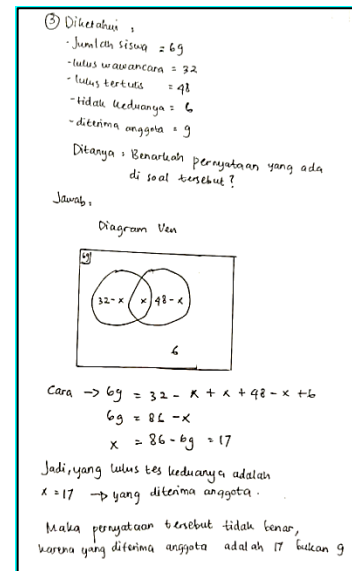 ③ Diketahui :
- Jumlah siswa = 69
- lulus wawancara = 32
- lulus tertulis = 48
- tidak keduanya = 6
- diterima anggota = 9
Ditanya : Benarkah pernyataan yang ada
di soal tersebut ?
Jawab :
Diagram Ven
69
32-x x 48-x
6
Cara → 69 = 32 - x + x + 48 - x + 6
69 = 86 - x
x = 86 - 69 = 17
Jadi, yang lulus tes keduanya adalah
x = 17 → yang diterima anggota.
Maka pernyataan tersebut tidak benar,
karena yang diterima anggota adalah 17 bukan 9